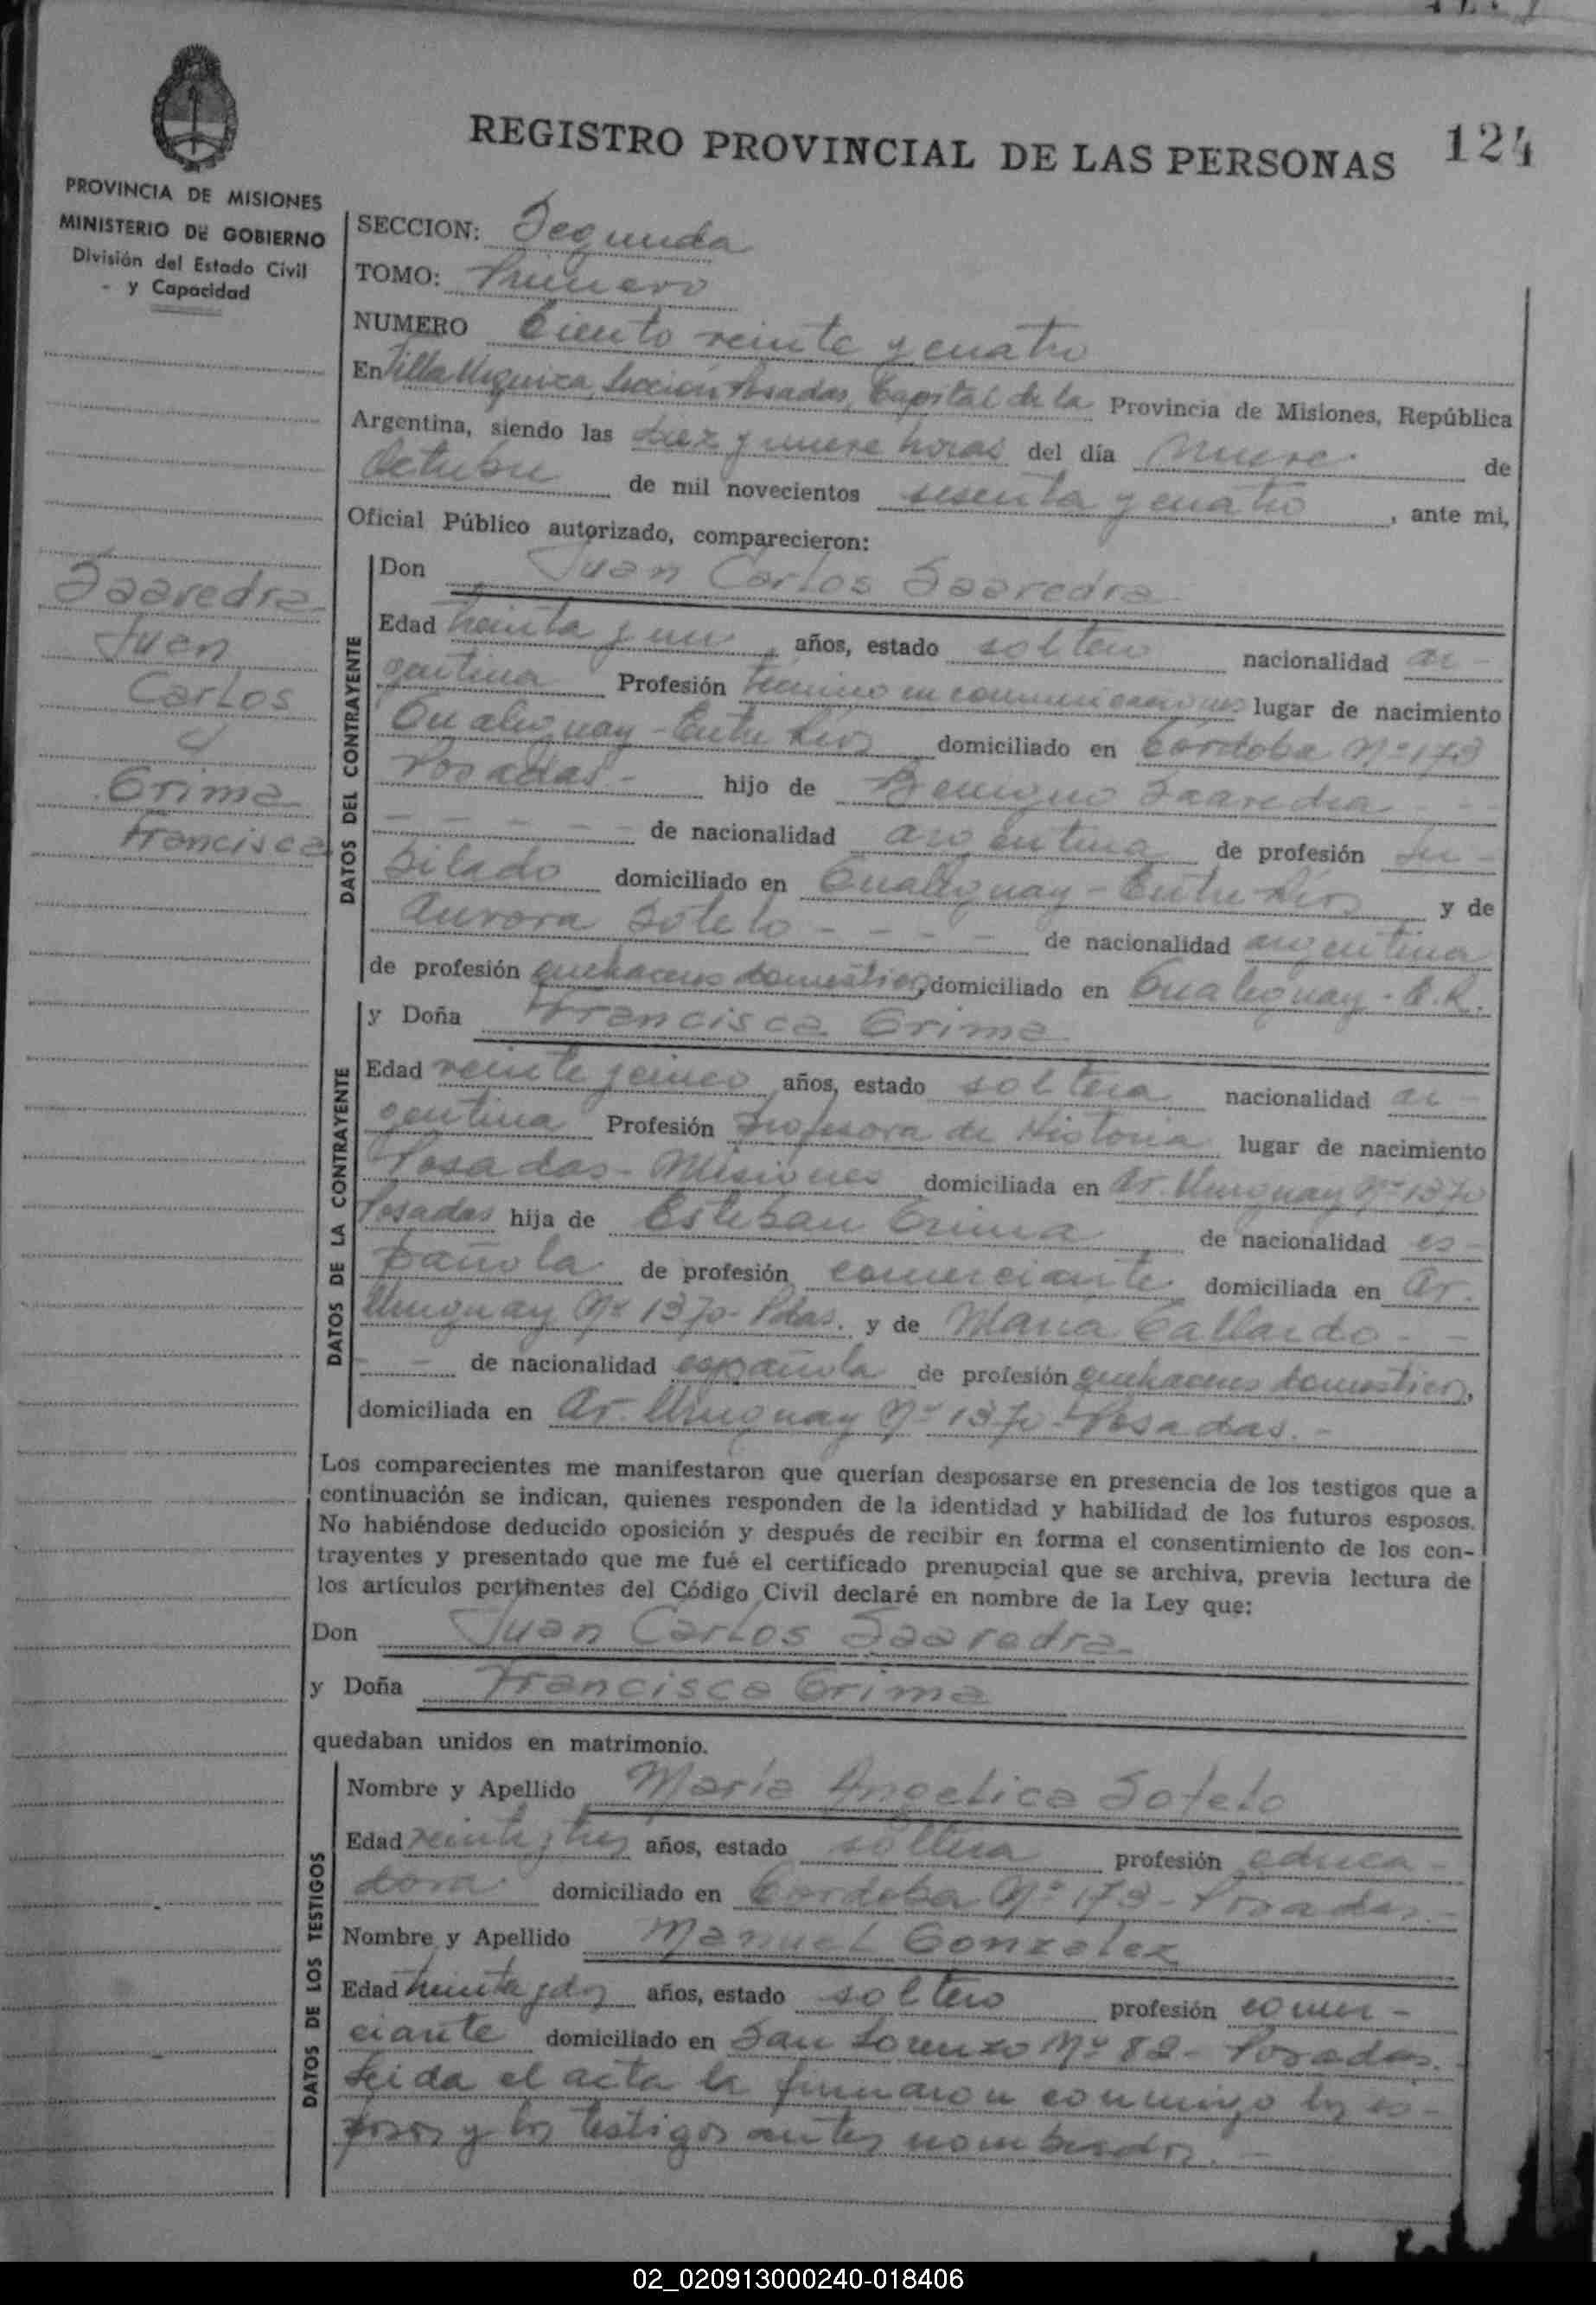 124
REGISTRO PROVINCIAL DE LAS PERSONAS
PROVINCIA DE MISIONES
MINISTERIO DE GOBIERNO
División del Estado Civil
- y Capacidad
SECCION: Segunda
TOMO: Primero
NUMERO Ciento veinte y cuatro
En Villa Urquiza, Sección Posadas, Capital de la Provincia de Misiones, República
Argentina, siendo las diez y nueve horas del día nueve de
Octubre de mil novecientos sesenta y cuatro, ante mi,
Oficial Público autorizado, comparecieron:
Saavedra
Juan
Carlos
c/
Grima
Francisca
DATOS DEL CONTRAYENTE
Don Juan Carlos Saavedra
Edad treinta y un años, estado soltero nacionalidad ar-
gentina Profesión técnico en comunicaciones lugar de nacimiento
Gualeguay - Entre Ríos domiciliado en Córdoba Nº 173
Posadas - hijo de Benigno Saavedra - - -
- - - - - - de nacionalidad argentina de profesión ju-
bilado domiciliado en Gualeguay - Entre Ríos y de
Aurora Sotelo - - - - de nacionalidad argentina
de profesión quehaceres domésticos, domiciliado en Gualeguay - E.R.
DATOS DE LA CONTRAYENTE
y Doña Francisca Grima
Edad veinte y cinco años, estado soltera nacionalidad ar-
gentina Profesión Profesora de Historia lugar de nacimiento
Posadas - Misiones domiciliada en Av. Uruguay Nº 1370
Posadas hija de Esteban Grima de nacionalidad es-
pañola de profesión comerciante domiciliada en Av.
Uruguay Nº 1370 - Pdas. y de María Gallardo - -
- - de nacionalidad española de profesión quehaceres domésticos,
domiciliada en Av. Uruguay Nº 1370 - Posadas. -
Los comparecientes me manifestaron que querían desposarse en presencia de los testigos que a
continuación se indican, quienes responden de la identidad y habilidad de los futuros esposos.
No habiéndose deducido oposición y después de recibir en forma el consentimiento de los con-
trayentes y presentado que me fué el certificado prenupcial que se archiva, previa lectura de
los artículos pertinentes del Código Civil declaré en nombre de la Ley que:
Don Juan Carlos Saavedra
y Doña Francisca Grima
quedaban unidos en matrimonio.
DATOS DE LOS TESTIGOS
Nombre y Apellido María Angelica Sotelo
Edad veinte y tres años, estado soltera profesión educa-
dora domiciliado en Córdoba Nº 173 - Posadas. -
Nombre y Apellido Manuel Gonzalez
Edad treinta y dos años, estado soltero profesión comer-
ciante domiciliado en San Lorenzo Nº 82 - Posadas.
Leida el acta la firmaron conmigo los es-
posos y los testigos antes nombrados. -
02_020913000240-018406